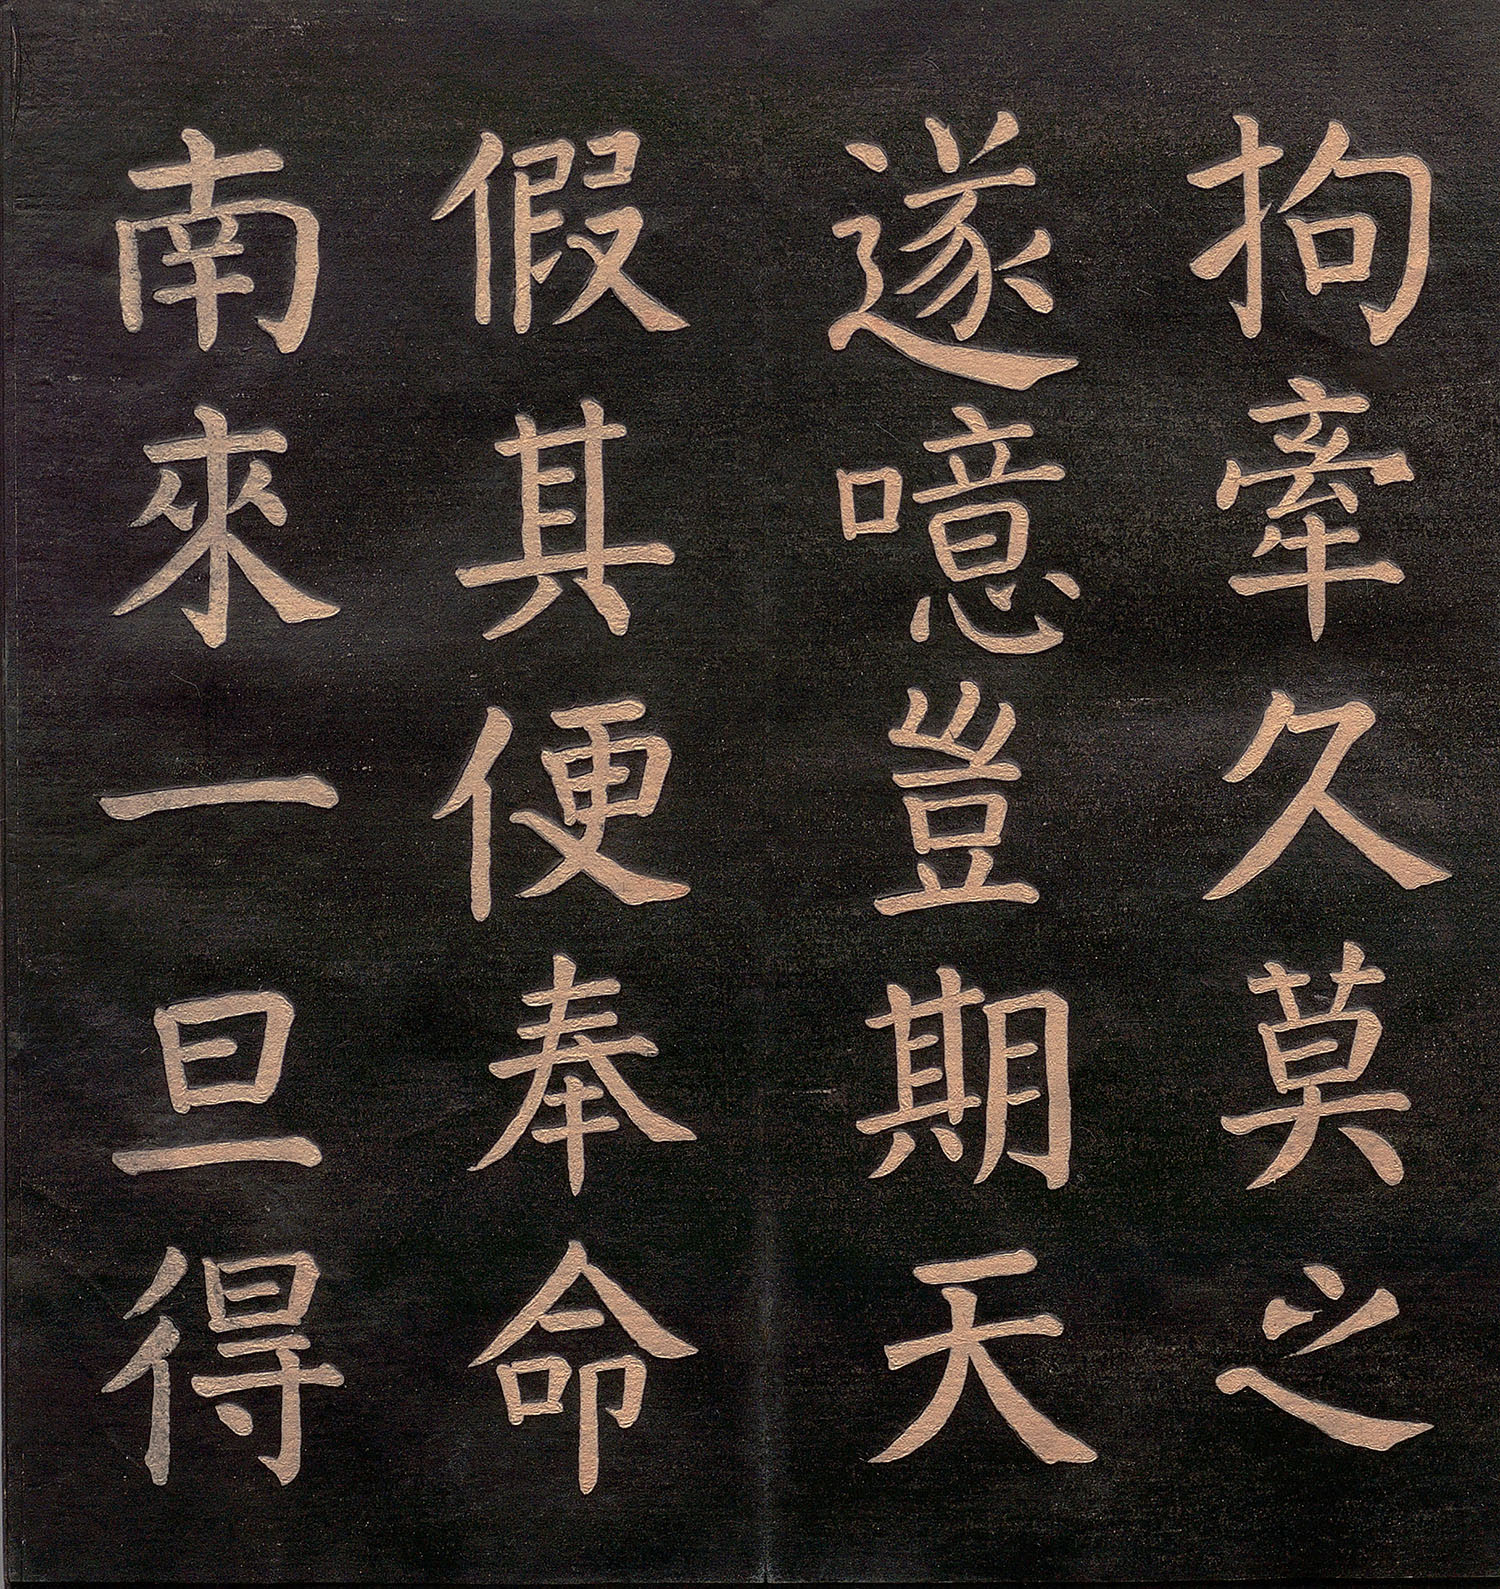 拘牽久莫之
遂噫豈期天
假其便奉命
南來一旦得